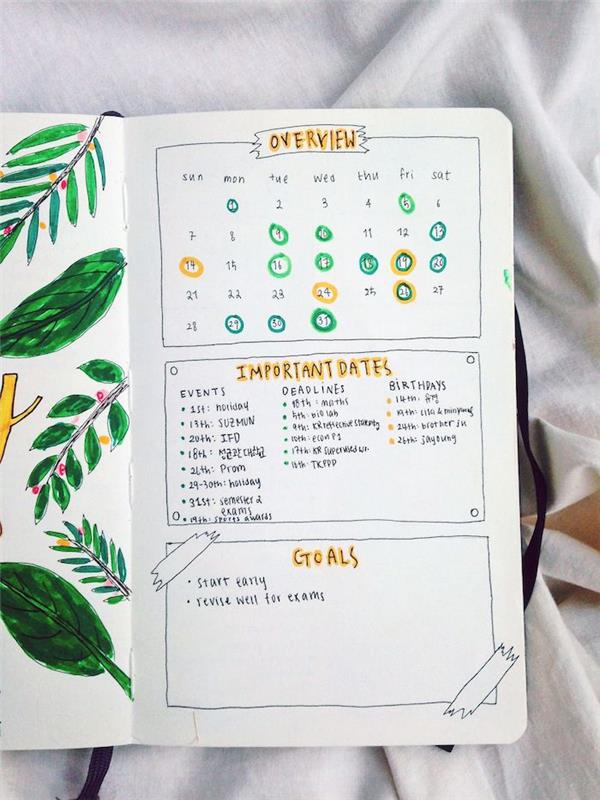 OVERVIEW
sun mon tue wed thu fri sat
1 2 3 4 5 6
7 8 9 10 11 12 13
14 15 16 17 18 19 20
21 22 23 24 25 26 27
28 29 30 31
IMPORTANT DATES
EVENTS
1st: holiday
13th: SUZMUN
20th: IFD
18th: 성균관대학교
26th: Prom
29-30th: holiday
31st: semester 2
exams
19th: sports awards
DEADLINES
18th: maths
5th: bio lab
9th: KR reflective
10th: econ P1
17th: KR supervised wr.
16th: TKPPD
BIRTHDAYS
14th:
19th: lisa & minyoung
24th: brother ju
26th: jayoung
GOALS
• start early
• revise well for exams